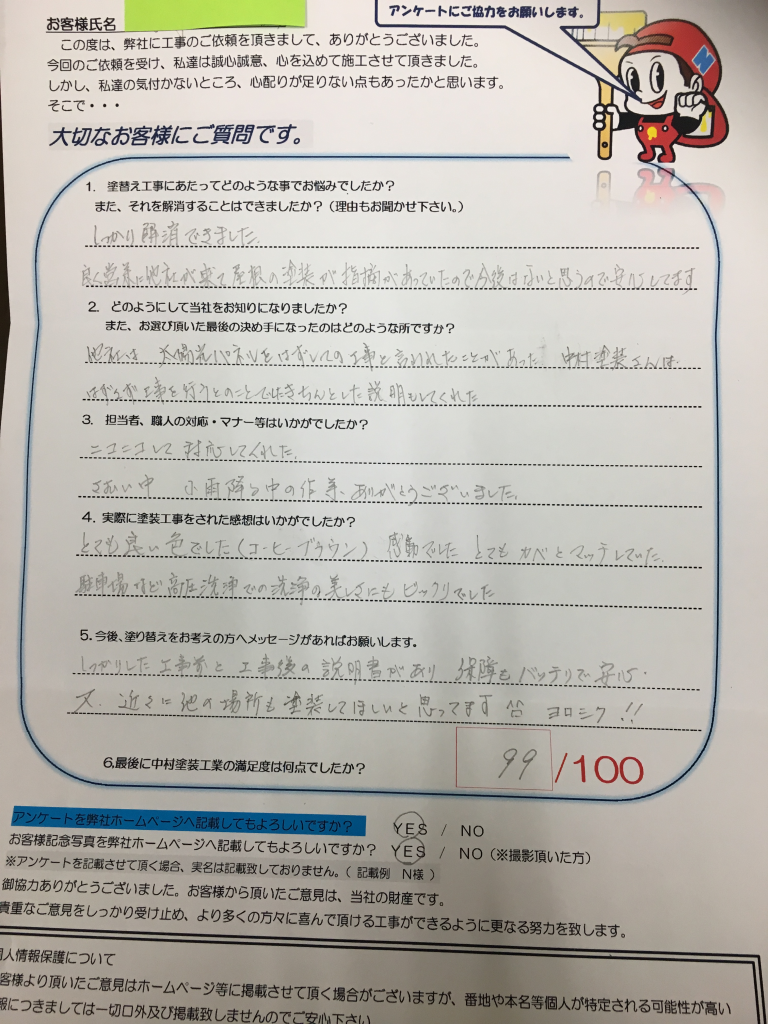 アンケートにご協力をお願いします。
お客様氏名
この度は、弊社に工事のご依頼を頂きまして、ありがとうございました。
今回のご依頼を受け、私達は誠心誠意、心を込めて施工させて頂きました。
しかし、私達の気付かないところ、心配りが足りない点もあったかと思います。
そこで・・・
大切なお客様にご質問です。
1. 塗替え工事にあたってどのような事でお悩みでしたか?
また、それを解消することはできましたか?(理由もお聞かせ下さい。)
しっかり解消できました。
良く営業に他社が来て屋根の塗装が指摘があっていたので今後はないと思うので安心してます
2. どのようにして当社をお知りになりましたか?
また、お選び頂いた最後の決め手になったのはどのような所ですか?
他社は 太陽光パネルをはずしての工事と言われたことがあった 中村塗装さんは
はずさず工事を行うとのことできちんとした説明もしてくれた
3. 担当者、職人の対応・マナー等はいかがでしたか?
ニコニコして対応してくれた。
さむい中 小雨降る中の作業、ありがとうございました。
4. 実際に塗装工事をされた感想はいかがでしたか?
とても良い色でした(コーヒーブラウン) 感動でした とてもカベとマッチしていた。
駐車場など高圧洗浄での洗浄の美しさにもビックリでした
5. 今後、塗り替えをお考えの方へメッセージがあればお願いします。
しっかりした工事前と工事後の説明書があり 保障もバッチリで安心。
又、近々に他の場所も塗装してほしいと思ってます ヨロシク!!
6.最後に中村塗装工業の満足度は何点でしたか?
99/100
アンケートを弊社ホームページへ記載してもよろしいですか? YES / NO
お客様記念写真を弊社ホームページへ記載してもよろしいですか? YES / NO(※撮影頂いた方)
※アンケートを記載させて頂く場合、実名は記載致しておりません。( 記載例 N様 )
御協力ありがとうございました。お客様から頂いたご意見は、当社の財産です。
貴重なご意見をしっかり受け止め、より多くの方々に喜んで頂ける工事ができるように更なる努力を致します。
個人情報保護について
客様より頂いたご意見はホームページ等に掲載させて頂く場合がございますが、番地や本名等個人が特定される可能性が高い
報につきましては一切口外及び掲載致しませんのでご安心下さい